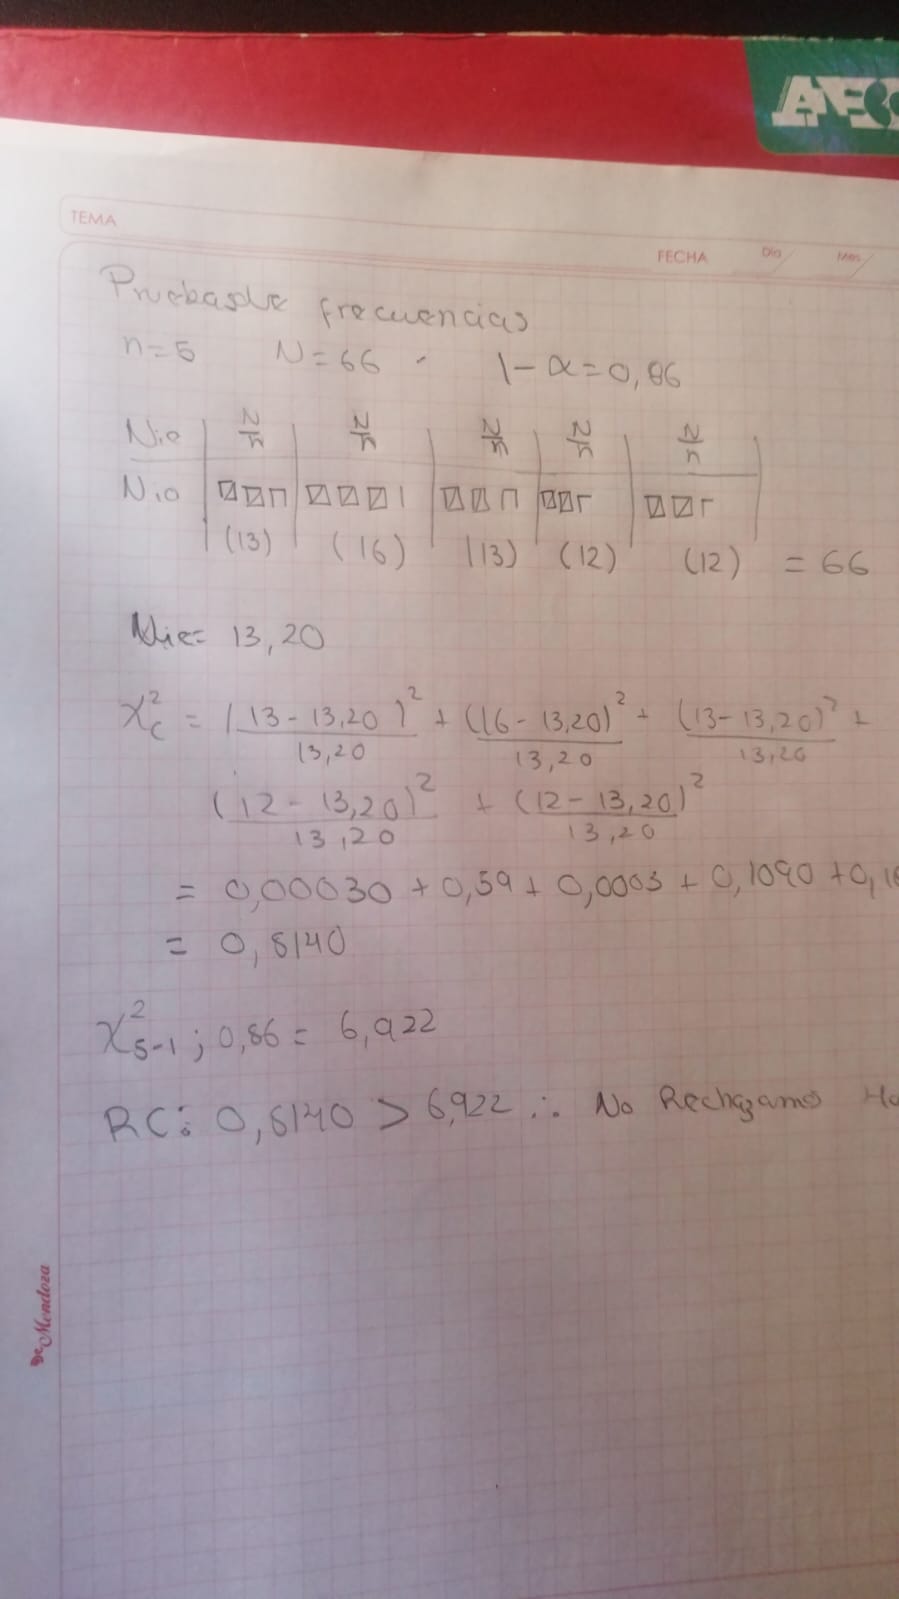 TEMA
FECHA Día Mes
Pruebas de frecuencias
n=5 N=66 1-α=0,86
Nie N/n N/n N/n N/n N/n
Nio
(13) (16) (13) (12) (12) = 66
Nie= 13,20
X²c = (13-13,20)²/13,20 + (16-13,20)²/13,20 + (13-13,20)²/13,20 +
(12-13,20)²/13,20 + (12-13,20)²/13,20
= 0,00030 + 0,59 + 0,0003 + 0,1090 + 0,10
= 0,8140
X²5-1 ; 0,86 = 6,922
RC: 0,8140 > 6,922 ∴ No Rechazamos Ho
De Mendoza